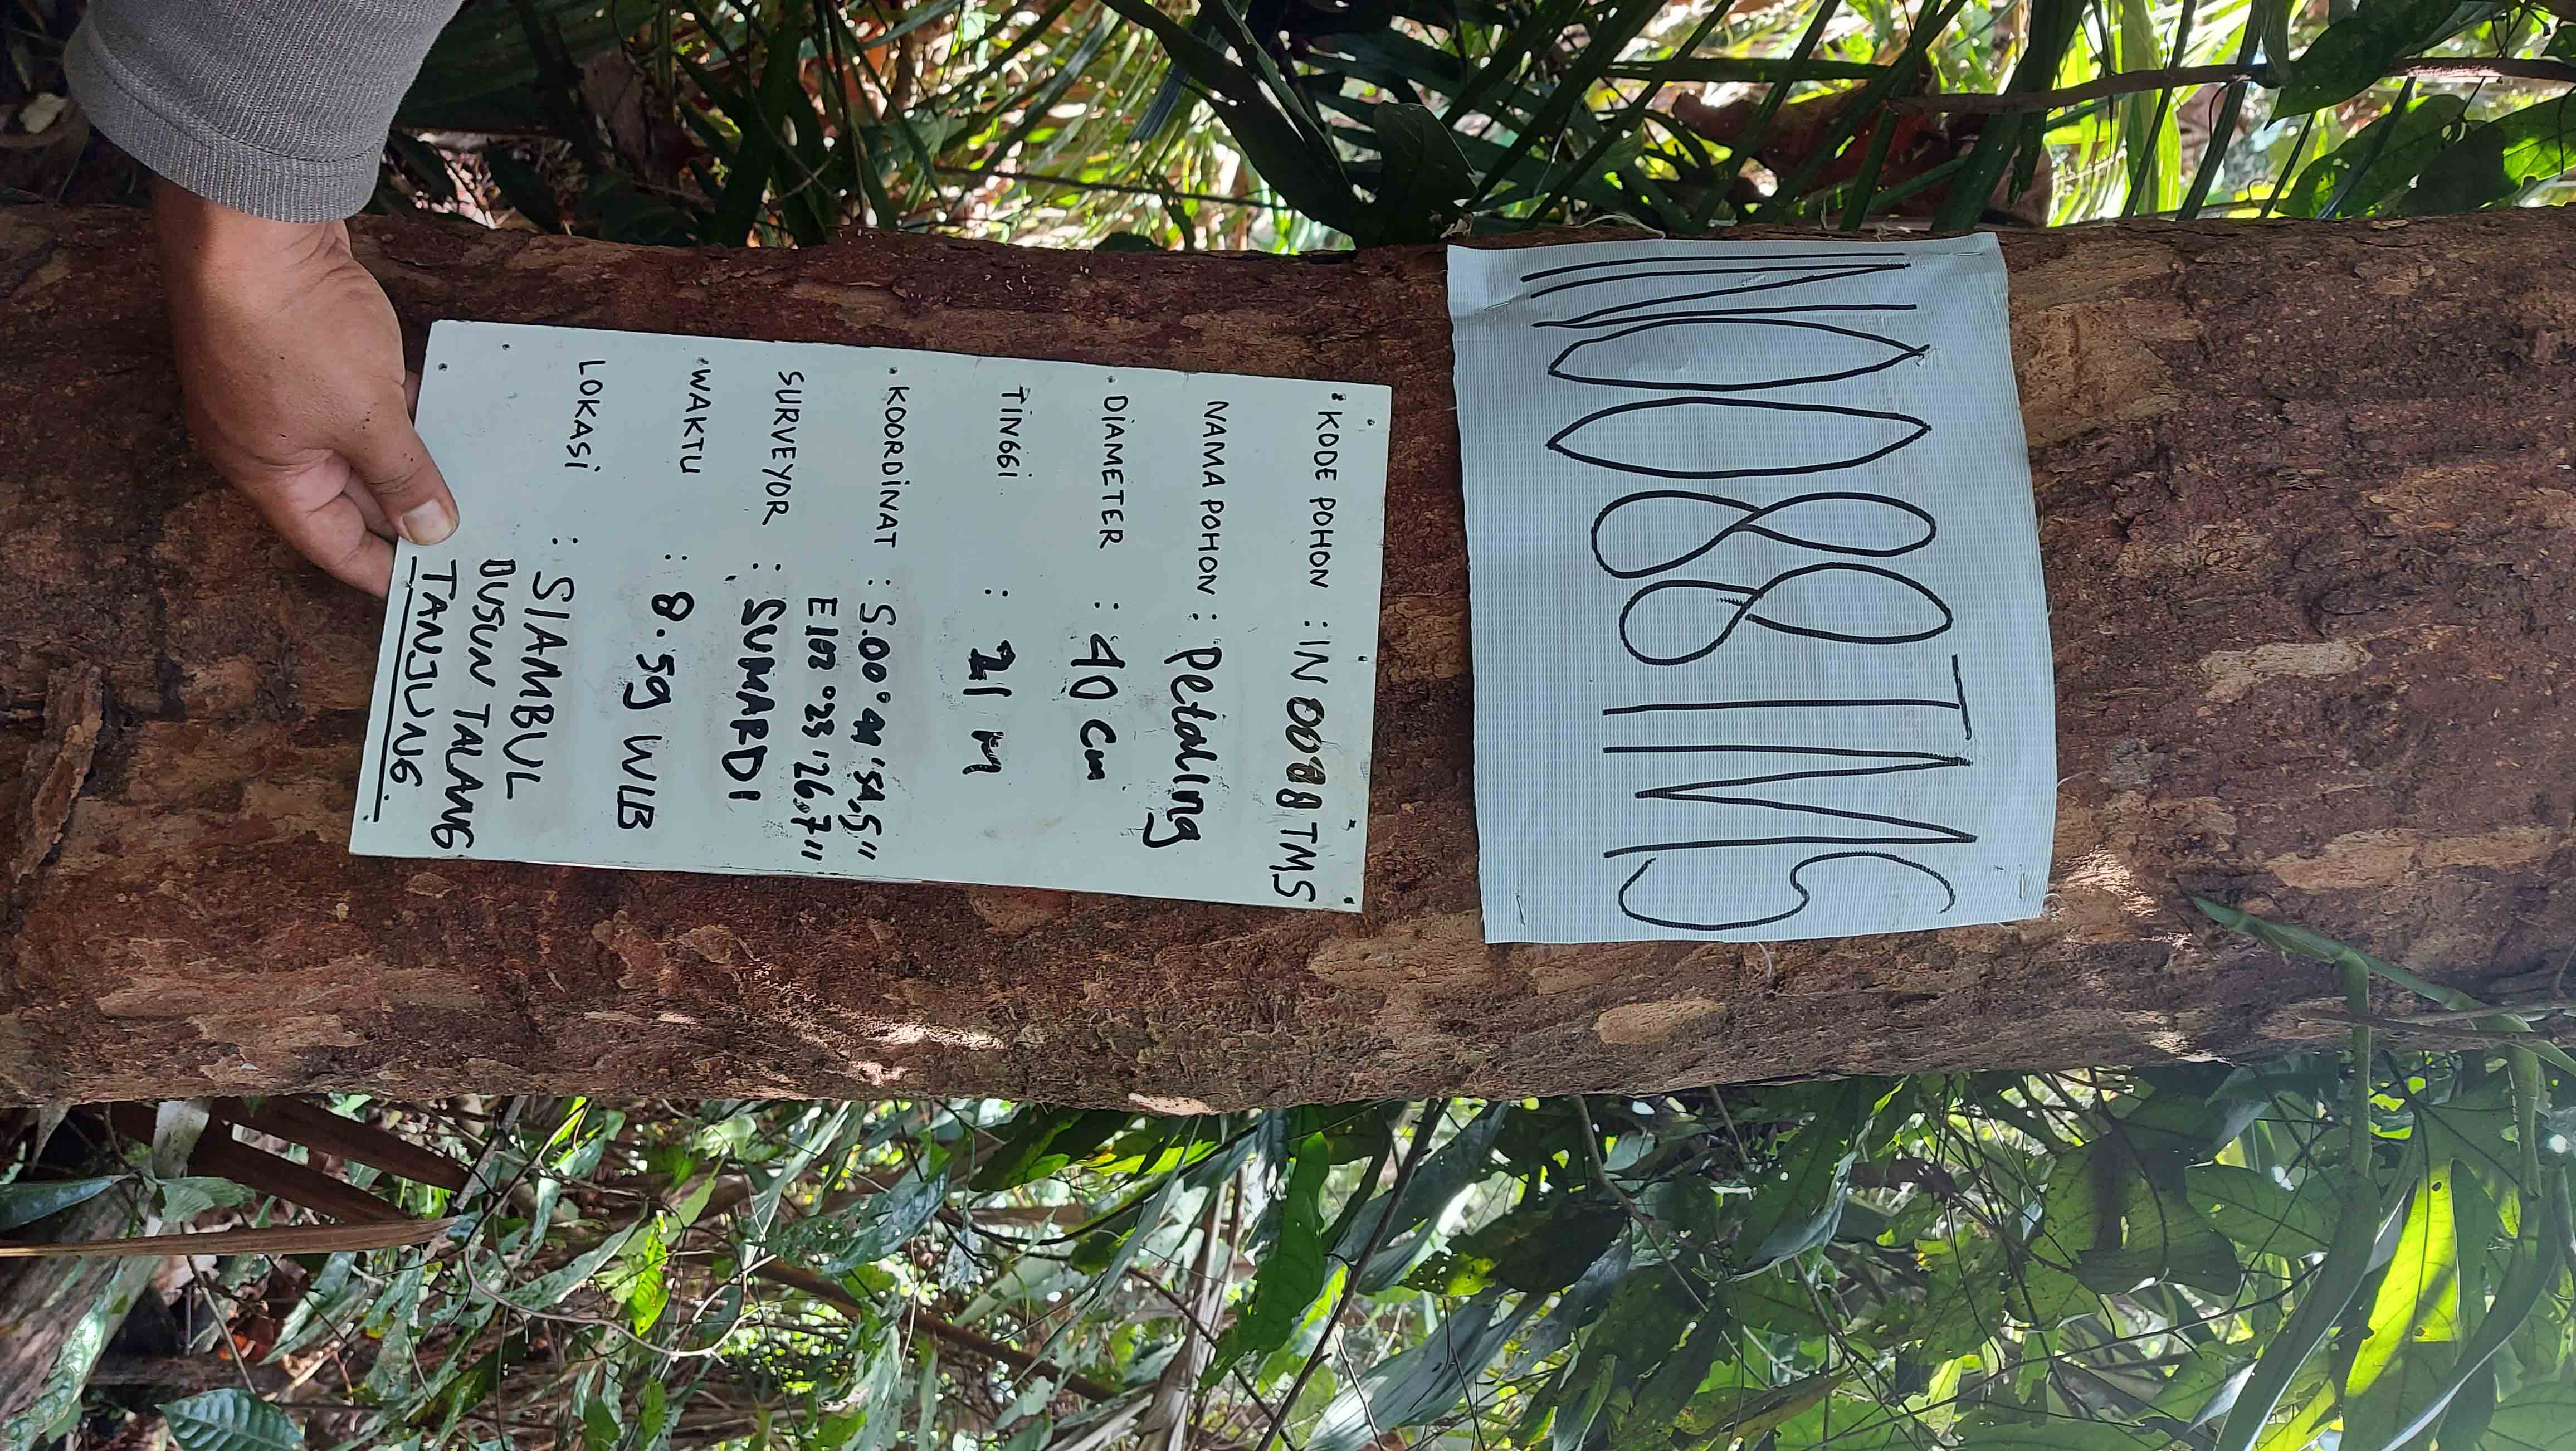 IN0088TMS
KODE POHON : IN 0088 TMS
NAMA POHON : Petaling
DIAMETER : 40 cm
TINGGI : 21 M
KOORDINAT : S.00° 44 '54,5"
E 102 °23 '26.7"
SURVEYOR : SUWARDI
WAKTU : 8.59 WIB
LOKASI : SIAMBUL
DUSUN TALANG
TANJUNG.